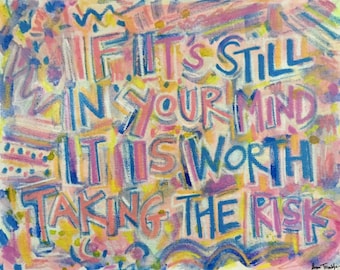 IF IT'S STILL
IN YOUR MIND
IT IS WORTH
TAKING THE RISK